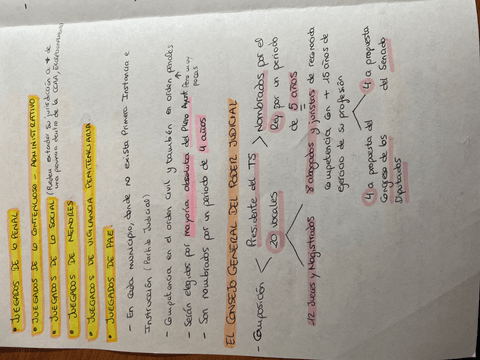 JUZGADOS DE LO PENAL
• JUZGADOS DE LO CONTENCIOSO - ADMINISTRATIVO
• JUZGADOS DE LO SOCIAL (Pueden extender su jurisdicción a + de
una provincia dentro de la CCAA, EXCEPCIONALM.
• JUZGADOS DE MENORES
• JUZGADOS DE VIGILANCIA PENITENCIARIA
• JUZGADOS DE PAZ
- En cada municipio, donde no exista Primera Instancia e
Instrucción (Partido Judicial)
- Competencia en el orden civil y también en orden penales
Pero muy
pocas
- Serán elegidos por mayoría absoluta del Pleno Ayot
- Son nombrados por un periodo de 4 años
EL CONSEJO GENERAL DEL PODER JUDICIAL
- Composición
Presidente del TS
20 vocales
Nombrados por el
Rey por un periodo
de 5 años
12 Jueces y Magistrados
8 abogados y juristas de reconocida
competencia con + 15 años de
ejercicio de su profesión
4 a propuesta del
Congreso de los
Diputados
4 a propuesta
del Senado